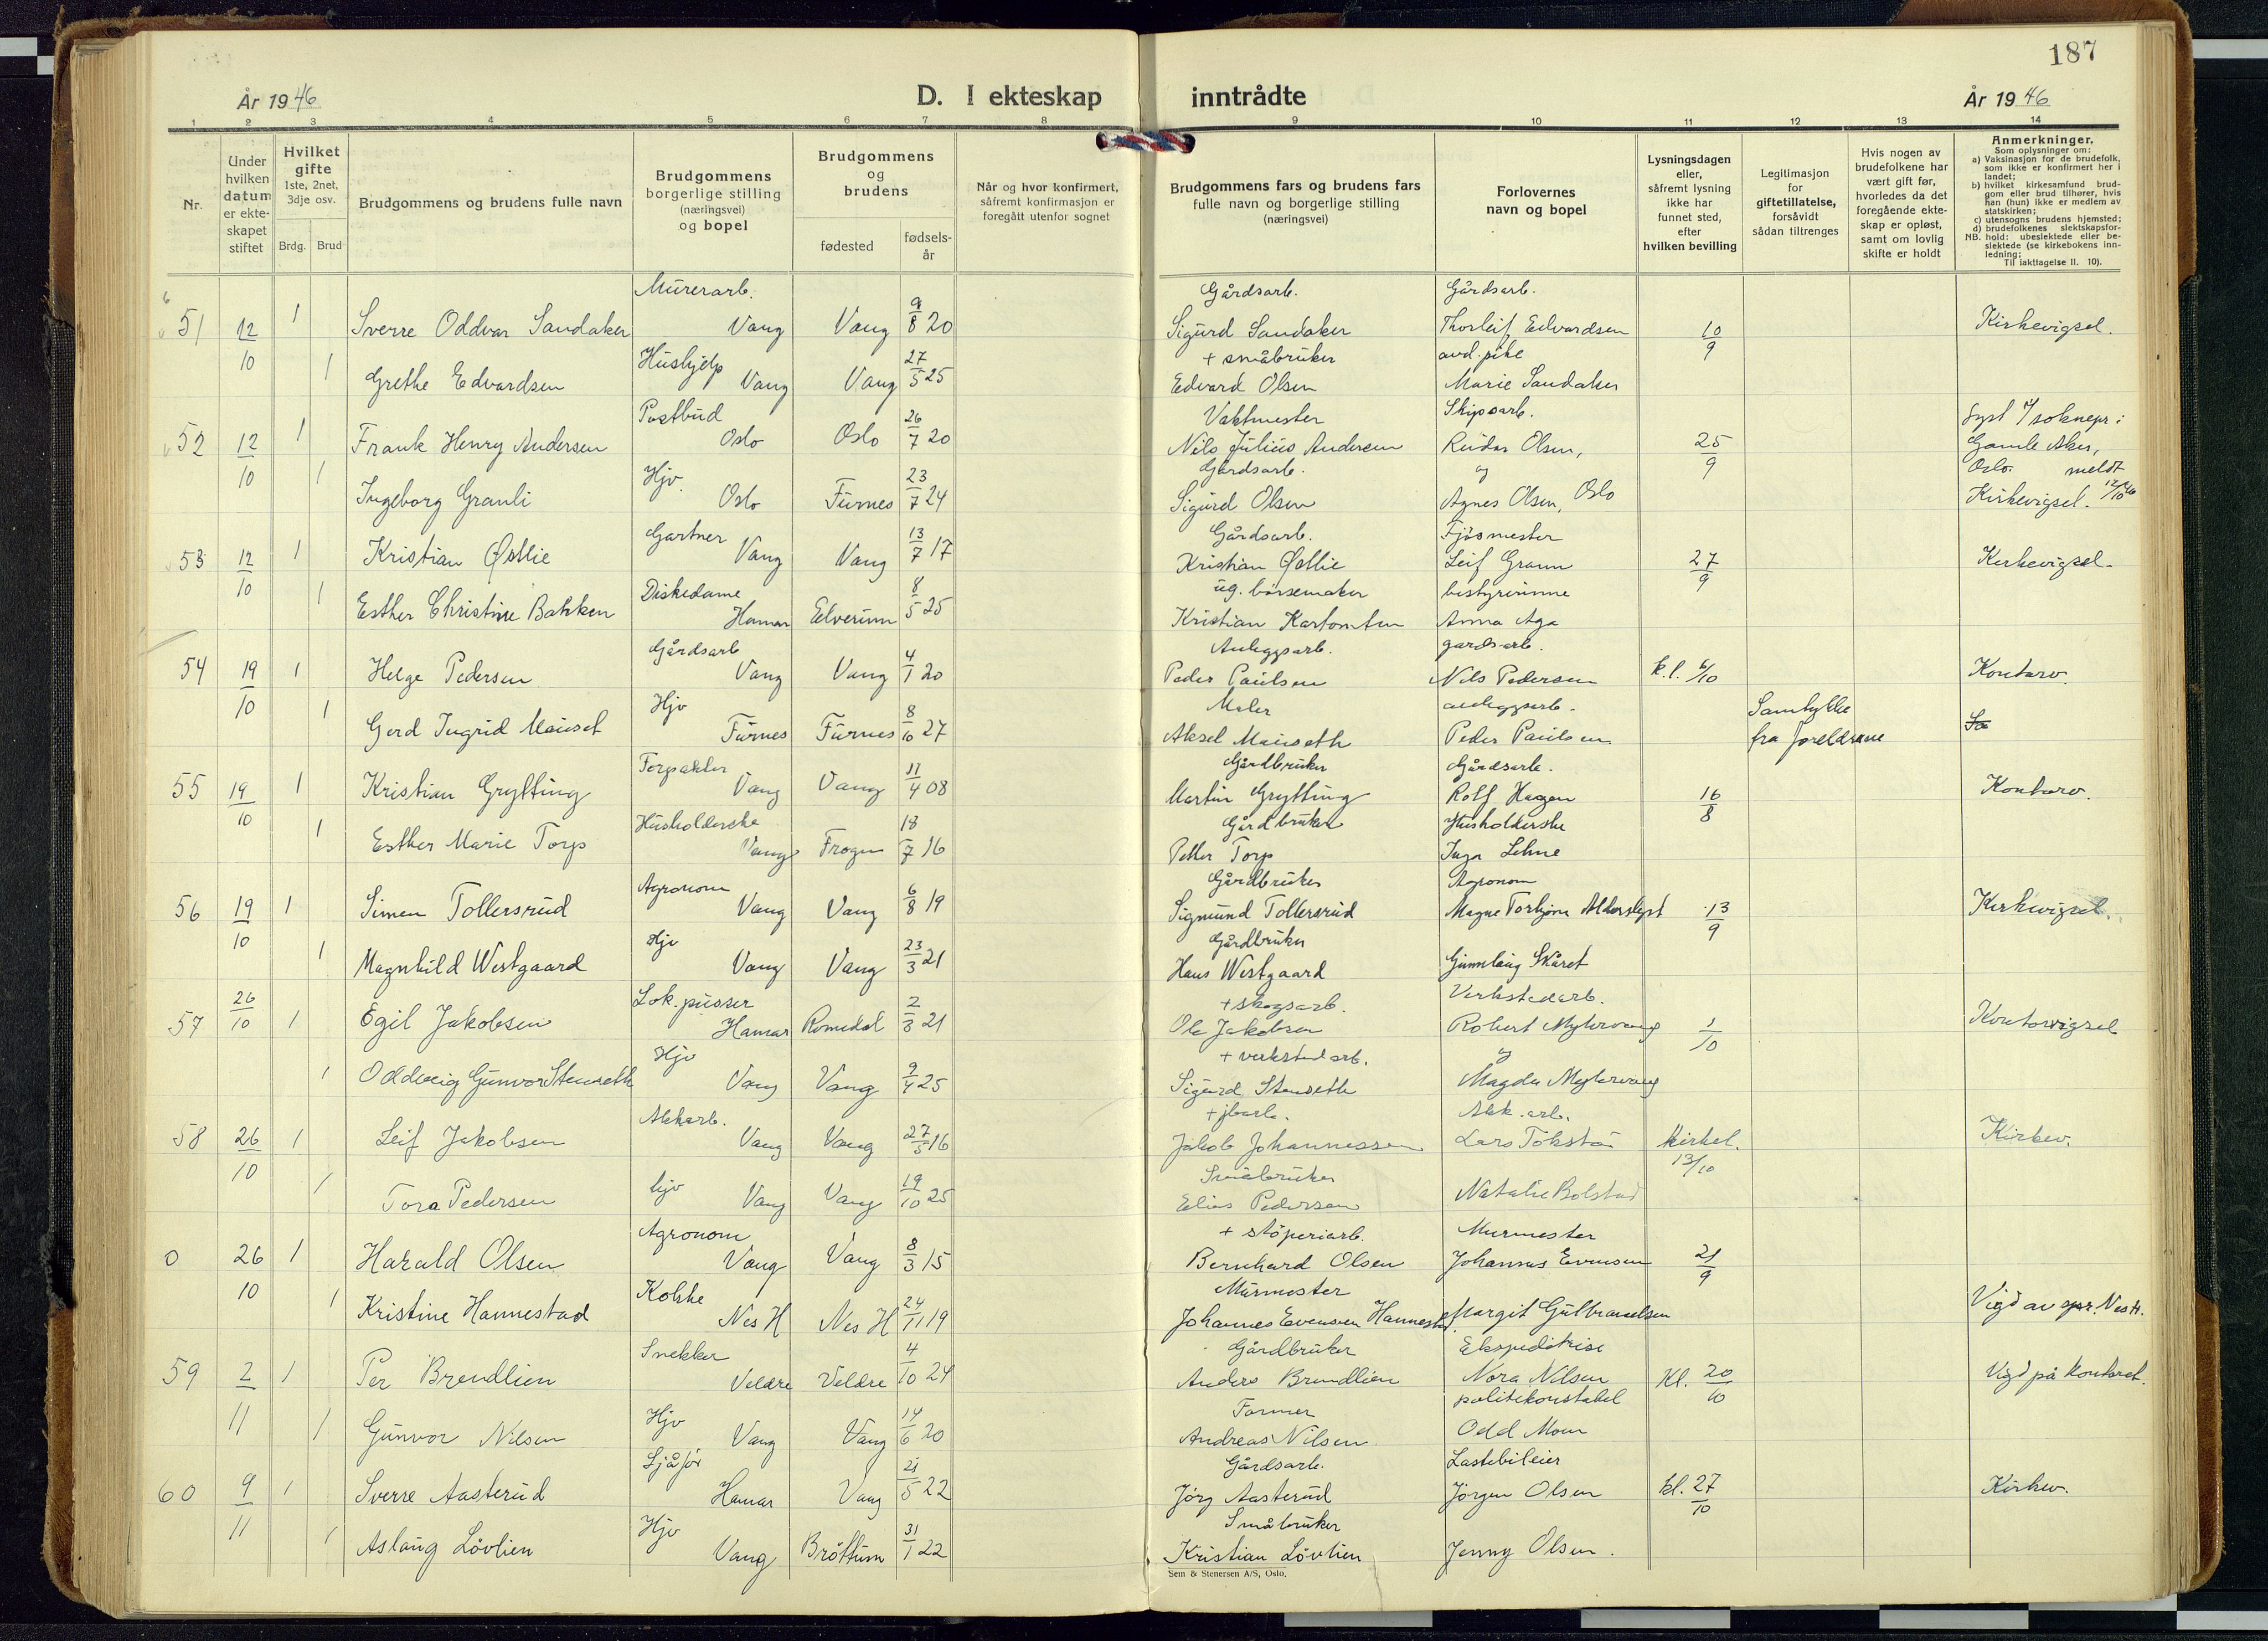 187
År 1946 D. I ekteskap inntrådte År 1946
1 2 3 4 5 6 7 8 9 10 11 12 13 14
Nr.
Under hvilken datum er ekteskapet stiftet
Hvilket gifte 1ste, 2net, 3dje osv.
Brdg. Brud
Brudgommens og brudens fulle navn
Brudgommens borgerlige stilling (næringsvei) og bopel
Brudgommens og brudens
fødested fødsels-år
Når og hvor konfirmert, såfremt konfirmasjon er foregått utenfor sognet
Brudgommens fars og brudens fars fulle navn og borgerlige stilling (næringsvei)
Forlovernes navn og bopel
Lysningsdagen eller, såfremt lysning ikke har funnet sted, efter hvilken bevilling
Legitimasjon for giftetillatelse, forsåvidt sådan tiltrenges
Hvis nogen av brudefolkene har vært gift før, hvorledes da det foregående ekteskap er opløst, samt om lovlig skifte er holdt
Anmerkninger.
Som oplysninger om:
a) Vaksinasjon for de brudefolk, som ikke er konfirmert her i landet;
b) hvilket kirkesamfund brudgom eller brud tilhører, hvis han (hun) ikke er medlem av statskirken;
c) utensogns brudens hjemsted;
d) brudefolkenes slektskapsforhold: ubeslektede eller beslektede (se kirkebokens innledning;
NB. Til iakttagelse II. 10).
Murerarb. Gårdsarb. Gårdsarb.
51 12/10 1 Sverre Oddvar Sandaker Vang Vang 9/8 20 Sigurd Sandaker Thorleif Edvardsen 10/9 Kirkevigsel.
Hushjelp + småbruker
1 Grethe Edvardsen Vang Vang 27/5 25 Edvard Olsen Marie Sandaker
Postbud Vaktmester Skipsarb.
52 12/10 1 Frank Henry Andersen Oslo Oslo 26/7 20 Nils Julius Andersen Reidar Olsen, 25/9 Gamle Aker,
Hjv. Gårdsarb. og Oslo. meldt
1 Ingeborg Granli Oslo Furnes 23/7 24 Sigurd Olsen Agnes Olsen, Oslo Kirkevigsel. 12/10 46
Gartner Gårdsarb. Fjøsmester
53 12/10 1 Kristian Østlie Vang Vang 13/7 17 Kristian Østlie Leif Gramm 27/9 Kirkevigsel.
Diskedame ug. børsemaker bestyrerinne
1 Esther Christine Bakken Hamar Elverum 8/5 25 Kristian Anna Aga
Gårdsarb Anleggsarb. gardsarb.
54 19/10 1 Helge Pedersen Vang Vang 4/1 20 Peder Paulsen Nils Pedersen k.l. 6/10 Kontorv.
Hjv Maler anleggsarb. Samtykke
1 Gerd Ingrid Mauset Furnes Furnes 8/10 27 Aksel Mauseth Peder Paulsen fra foreldrene
Forpakter Gårdbruker Gårdsarb.
55 19/10 1 Kristian Grytting Vang Vang 11/4 08 Martin Grytting Rolf Hagen 16/8 Kontorv.
Husholderske Gårdbruker Husholderske
1 Esther Marie Torp Vang Frogn 18/7 16 Petter Torp Inga Lehne
Agronom Gårdbruker Agronom
56 19/10 1 Simen Tollersrud Vang Vang 6/8 19 Sigmund Tollersrud Magne Torbjørn Alderslyst 13/9 Kirkevigsel.
Hjv Gårdbruker
1 Magnhild Westgaard Vang Vang 23/3 21 Hans Westgaard Gunnlaug Skåret
Lok.pusser + skogsarb. Verkstedarb.
57 26/10 1 Egil Jakobsen Hamar Romedal 2/3 21 Ole Jakobsen Robert Myhrvang 1/10 Kontorvigsel
Hjv + verkstedarb. og
1 Oddveig Gunvor Stenseth Vang Vang 9/4 25 Sigurd Stenseth Magda Myhrvang
Akkarb. + jbarb. Akk.arb.
58 26/10 1 Leif Jakobsen Vang Vang 27/5 16 Jakob Johannessen Lars Tokstad kirkel. 13/10 Kirkev.
hjv Småbruker
1 Tora Pedersen Vang Vang 19/10 25 Elias Pedersen Natalie Bolstad
Agronom + støperiarb. Murmester
0 26/10 1 Harald Olsen Vang Vang 8/3 15 Bernhard Olsen Johannes Evensen 21/9
Kokke Murmester
1 Kristine Hannestad Nes H Nes H 24/11 19 Johannes Evensen Hannestad Margit Gulbrandsen Vigd av spr. Nes H.
Snekker Gårdbruker Ekspeditrise
59 2/11 1 Per Brendlien Veldre Veldre 4/10 24 Anders Brendlien Nora Nilsen Kl. 20/10 Vigd på kontoret.
Hjv Farmer politikonstabel
1 Gunvor Nilsen Vang Vang 14/6 20 Andreas Nilsen Odd Moen
Sjåfør Gårdsarb. Lastebileier
60 9/11 1 Sverre Aasterud Hamar Vang 21/5 22 Jørg Aasterud Jørgen Olsen kl. 27/10 Kirkev.
Hjv Småbruker
1 Aslaug Løvlien Vang Brøttum 31/1 22 Kristian Løvlien Jenny Olsen.
Sem & Stenersen A/S, Oslo.